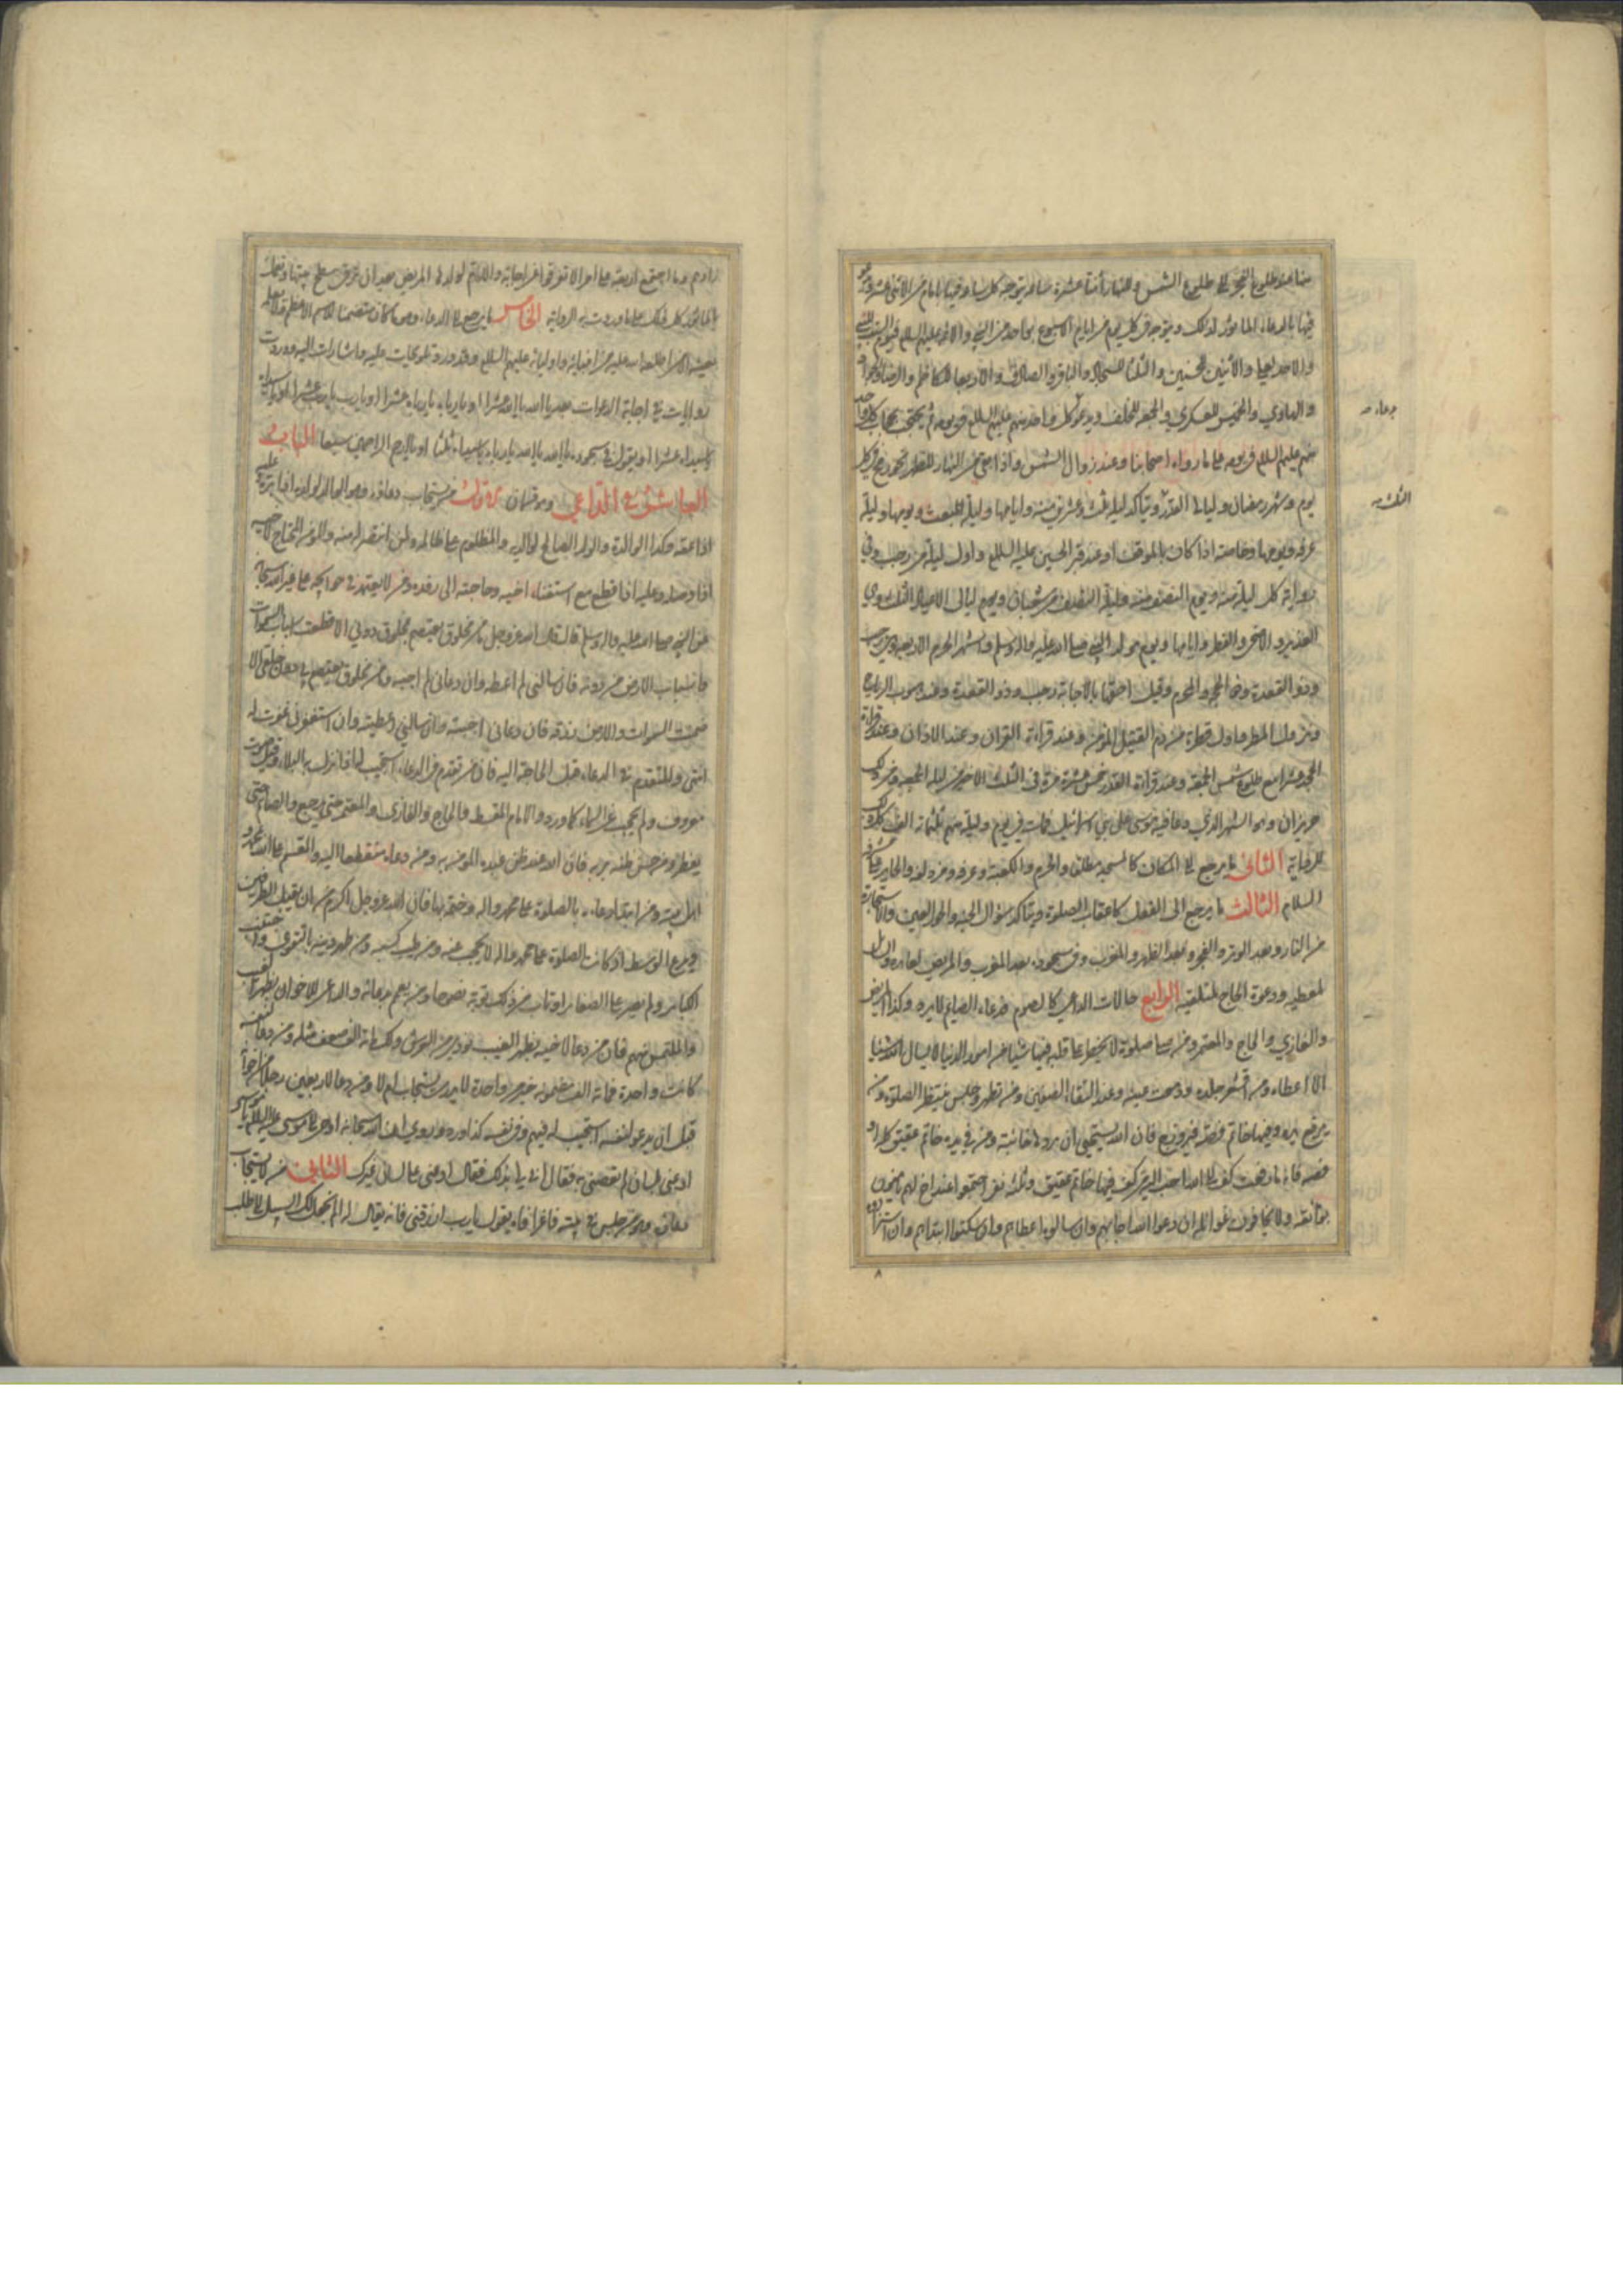 منها عند طلوع الفجر الى طلوع الشمس وللنهار أثنتا عشرة ساعة يتوجه كل ساعة منها بامام من الاثنى عشر ويدعو
فيها بالدعاء الماثور لذلك ويتوجه في كل يوم من ايام الاسبوع بواحد من النبي والائمة عليهم السلم فيوم السبت للنبي
والاحد لعلي والأثنين للحسنين والثلثا للسجاد والباقر والصادق والاربعا للكاظم والرضا والجواد
والهادي والخميس للعسكري والجمعة للخلف ويدعو كل واحد منهم عليهم السلم في يومه ثم يحتجب بحجاب كل واحد
منهم عليهم السلم في يومه على ما رواه اصحابنا وعند زوال الشمس واذا مضى من النهار للظهر نحو رمح في كل
يوم وشهر رمضان وليالى القدر ويتاكد ليلة ثلث وعشرين منه وايامها وليلة المبعث ويومها وليلة
عرفه ويومها وخاصة اذا كان بالموقف او عند قبر الحسين عليه السلم واول ليلة من رجب وفي
رواية كل ليلة منه ويوم النصف منه وليلة النصف من شعبان ويوم ليالى الاعياد الثلث وهي
الغدير والاضحى والفطر وايامها ويوم مولد النبي صلى الله عليه واله وسلم واشهر الحرم الاربعة وهي رجب
وذو القعدة وذو الحجة والمحرم وقيل احقها بالاجابة رجب وذو القعدة وعند هبوب الرياح
ونزول المطر واول قطرة من دم القتيل المؤمن وعند قراءة القران وعند الاذان وعند قراءة
الجحد عشرا مع طلوع شمس الجمعة وعند قراءة القدر خمس عشرة مرة في الثلث الاخير من ليلة الجمعة
حزيران وهو الشهر الذي دعا فيه موسى على بني اسرائيل فمات في يوم وليلة منهم ثلثمائة الف
للرواية الثانى ما يرجع الى المكان كالمسجد مطلقا والحرم والكعبة وعرفه ومزدلفه والحاير
السلام الثالث ما يرجع الى الفعل كاعقاب الصلوة ويتاكد سؤال الجنة والحور العين والاستجارة
من النار وبعد الوتر والفجر وبعد الظهر والمغرب وفي سجوده بعد المغرب والمريض لعايده والسايل
لمعطيه ودعوة الحاج لمتلقيه الرابع حالات الداعي كالصوم فدعاء الصايم لا يرد وكذا المريض
والغازي والحاج والمعتمر ومن صلى صلوة لا يخطر على قلبه فيها شيئا من امور الدنيا لا يسال الله شيئا
الا اعطاه ومن اقشعر جلده ودمعت عينه وعند التقاء الصفين ومن تطهر وجلس ينتظر الصلوة ومن
يرفع يده وفيها خاتم فضة فيروزج فان الله يستحيى ان يردها خائبة ومن في يده خاتم عقيق
فضه فانه ما رفعت كف الى الله احب اليه من كف فيها خاتم عقيق وثلثة نفر اجتمعوا عند اخ لهم يامنون
بوائقه ولا يخافون غوائله ان دعوا الله اجابهم وان سالوه اعطاهم وان سكتوا ابتداهم وان استزادوه
دعاء
الثلث
زادهم وما اجتمع اربعة على امر الا تفرقوا عن اجابة
بالماثور كل ذلك على ما وردت به الرواية الخامس ما يرجع الى الدعاء وهو ما كان متضمنا للاسم الاعظم
عليه من انبيائه واوليائه عليهم السلم وقد ورد تلويحات عليه واشارات اليه ووردت
روايات في اجابة الدعوات بعد يا الله يا الله عشرا او يا رباه يا رباه عشرا او يا رب يا رب عشرا
يا سيداه عشرا او يقول في سجوده يا الله يا رباه يا سيداه ثلثا او يا ارحم الراحمين سبعا الباب
العاشر في الداعي وهو قسمان الاول من يستجاب دعاؤه وهو الوالد لولده اذا بره وعليه
اذا عقه وكذا الوالدة والولد الصالح لوالديه والمظلوم على ظالمه ولمن انتصر له منه والمؤمن المحتاج لاخيه
اذا وصله وعليه اذا قطع مع استغناء اخيه وحاجته الى رفده ومن لا يعتمد في حوائجه على غير الله سبحانه
فعن النبي صلى الله عليه واله وسلم قال قال الله عز وجل ما من مخلوق يعتصم بمخلوق دوني الا قطعت اسباب السموات
واسباب الارض من دونه فان سالنى لم اعطه وان دعانى لم اجبه وما من مخلوق يعتصم بي دون خلقي الا
ضمنت السموات والارض رزقه فان دعانى اجبته وان سالني اعطيته وان استغفرنى غفرت له
انتهى والمتقدم في الدعاء قبل الحاجة اليه فان من تقدم في الدعاء استجيب له اذا نزل به البلاء وقيل صوت
معروف ولم يحجب عن السماء كما ورد والامام المقسط والحاج والغازى والمعتمر حتى يرجع والصايم حتى
يفطر ومن حسن ظنه بربه فان الله عند ظن عبده المؤمن به ومن دعاه منقطعا اليه والمقسم على الله بمحمد و
اهل بيته ومن ابتدا دعاءه بالصلوة على محمد واله وختمه بها فان الله عز وجل اكرم من ان يقبل الطرفين
ويدع الوسط اذ كانت الصلوة على محمد واله لا يحجب عنه ومن طيب كسبه ومن طهر دينه بالتقوى واجتنب
الكبائر ولم يصر على الصغاير او تاب من ذلك توبة نصوحا ومن يعم بدعائه والداعي للاخوان بظهر الغيب
والملتمس منهم فان من دعا لاخيه بظهر الغيب نودي من العرش ولك مائة الف ضعف مثله ومن دعا لنفسه
كانت واحدة فمائة الف مضمونه خير من واحدة لا يدرى يستجاب ام لا ومن دعا لاربعين رجلا من اخوانه
قبل ان يدعو لنفسه استجيب له فيهم وفي نفسه كذا ورد وروي ان الله سبحانه اوحى الى موسى عليه السلام يا موسى
ادعنى بلسان لم تعصنى به فقال انى لى بذلك فقال ادعنى على لسان غيرك الثانى من لا يستجاب
دعاؤه وهو من جلس في بيته فاغرا فاه يقول يا رب ارزقنى فانه يقال له الم اجعل لك السبيل الى طلب